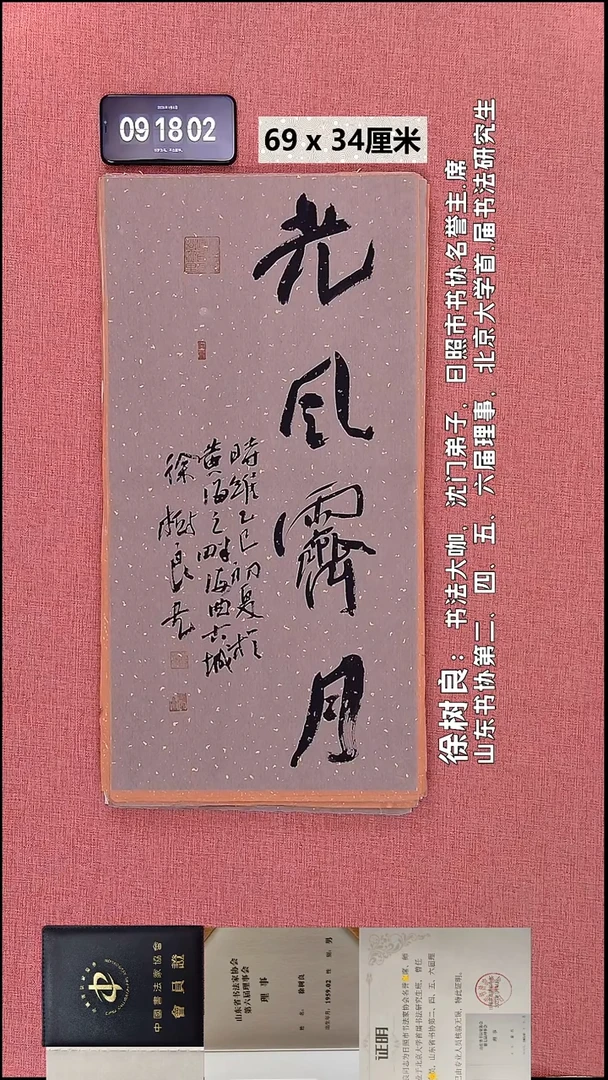 09 18 02
69 x 34厘米
光风霽月
時維乙巳初夏於
黄海之畔海曲古城
徐树良书
徐树良：书法大咖，沈门弟子，日照市书协名誉主.席
山东书协第二、四、五、六届理事，北京大学首.届书法研究生
中國書法家協會
會員證
山东省书法家协会
第六届理事会
理事
姓名：徐树良
性别：男
出生年月：1959.02
证明